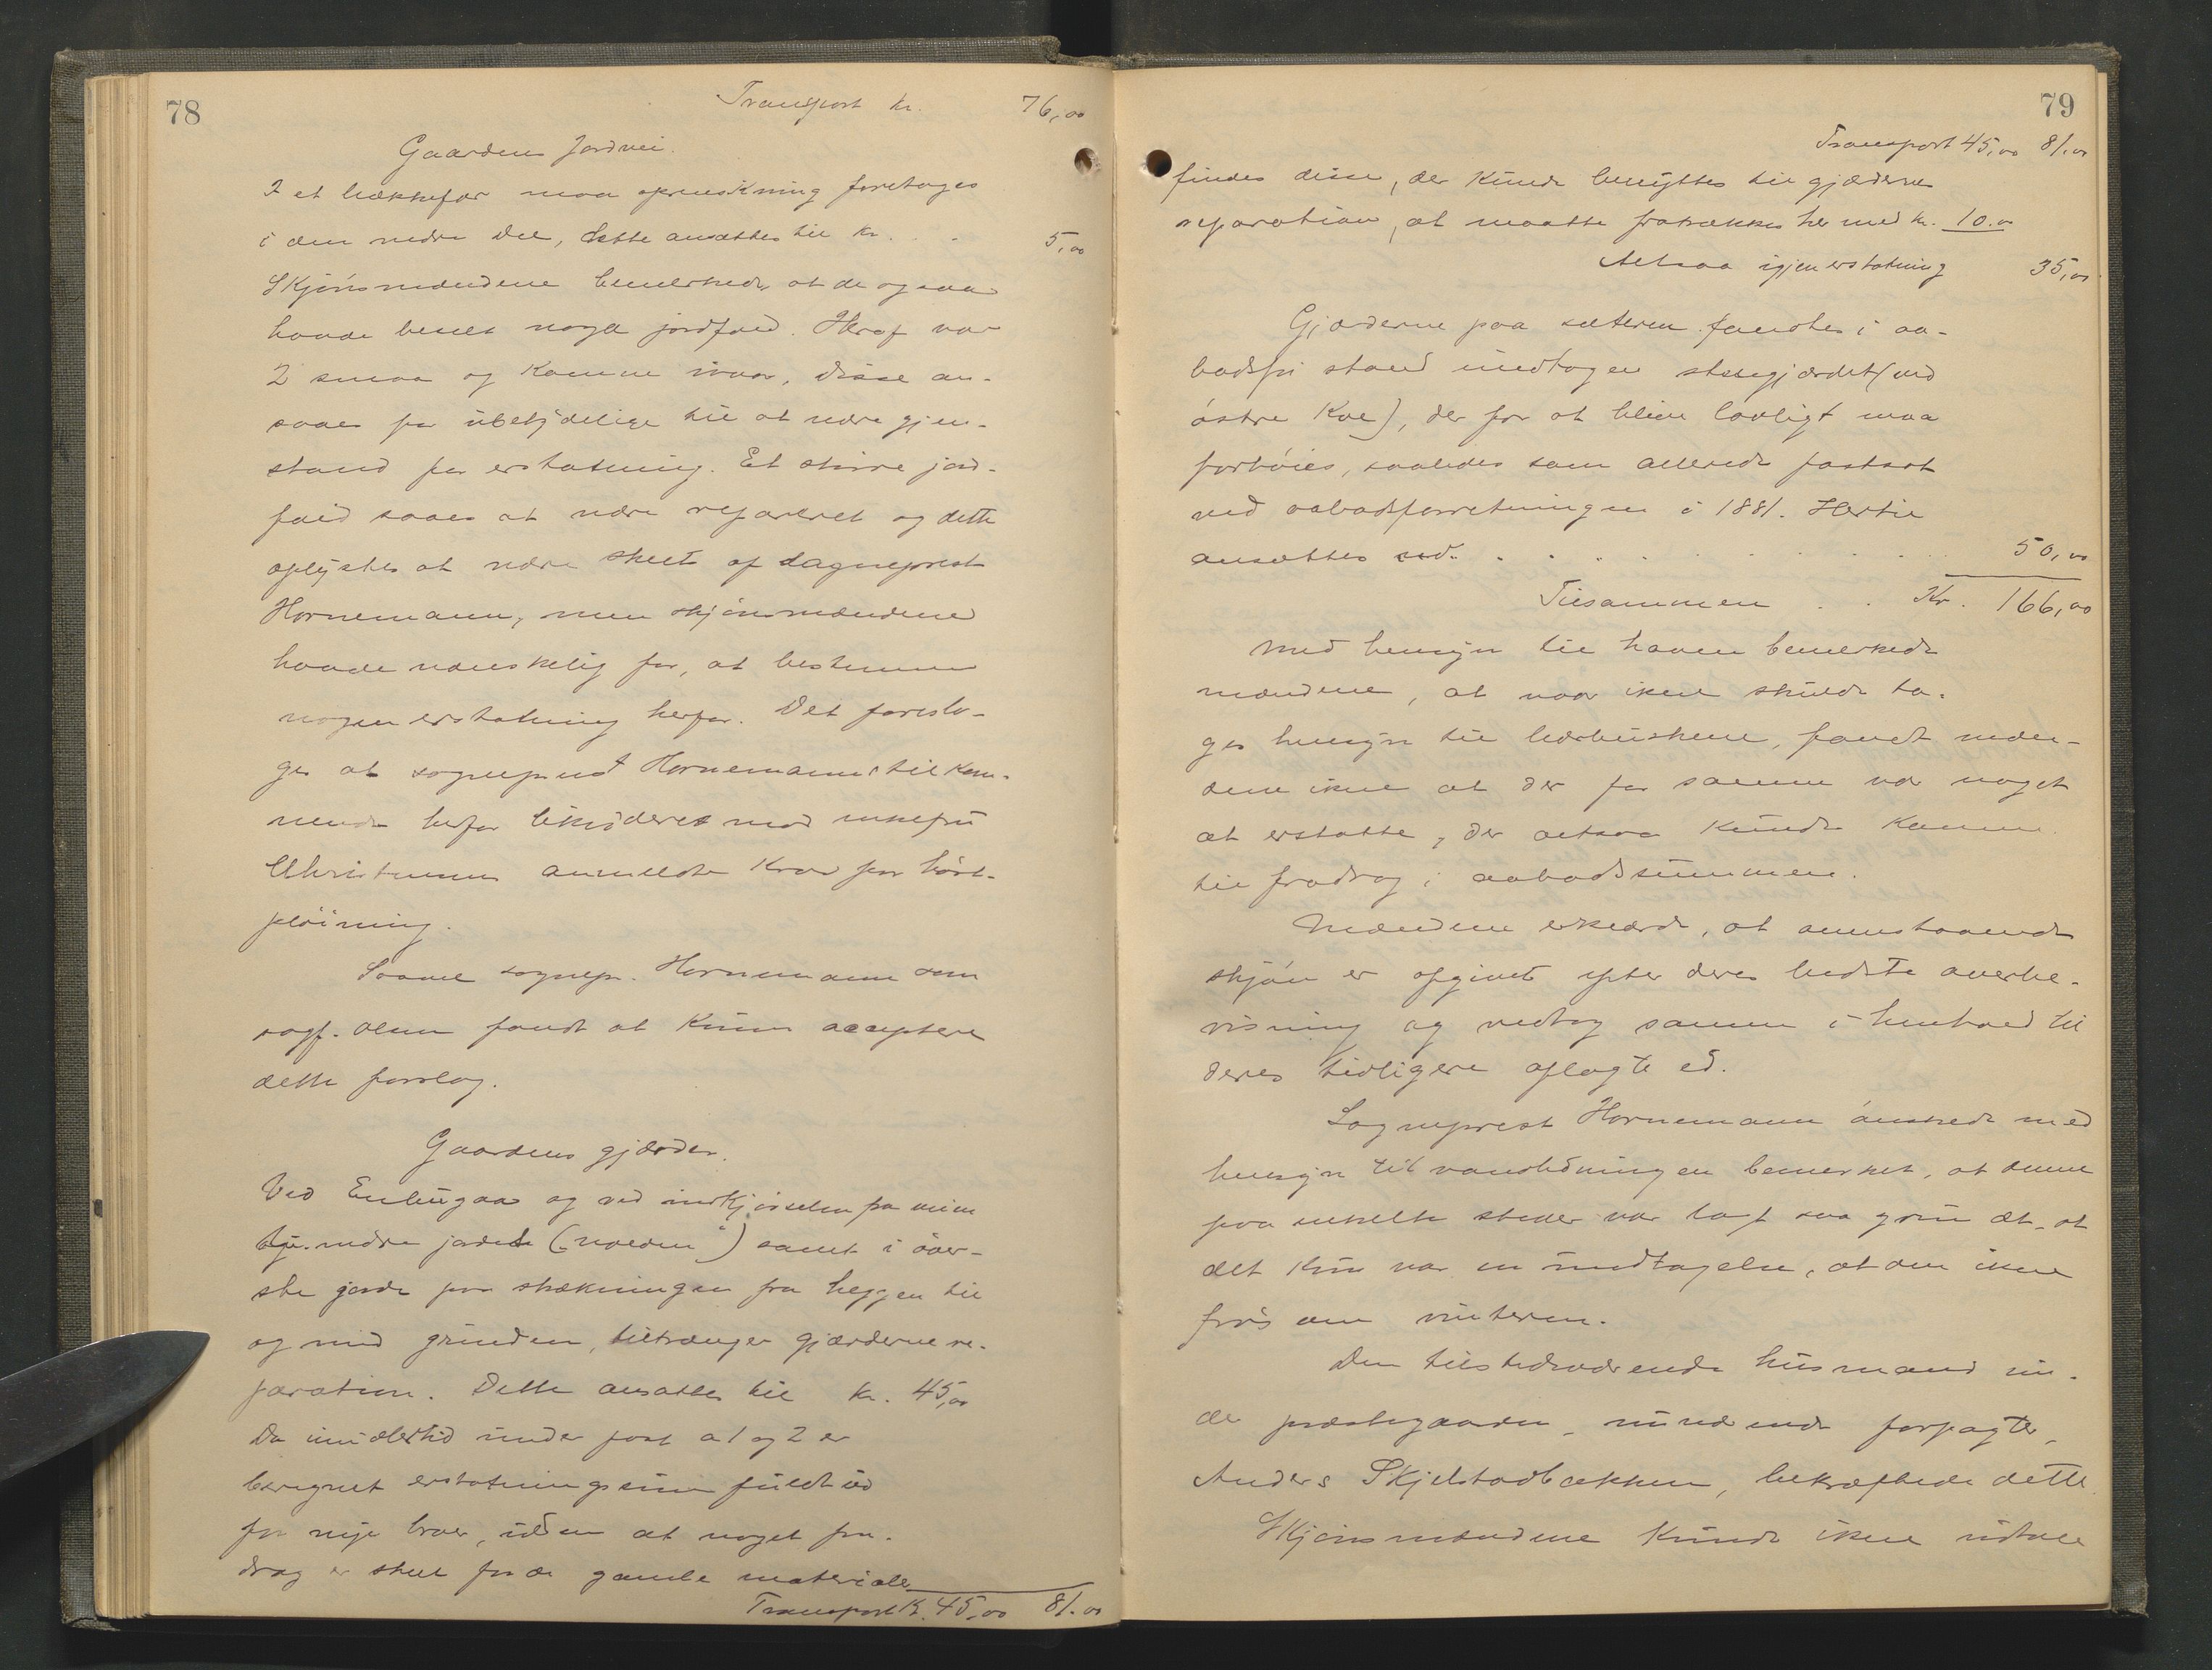 78
Transport kr. 76,00
Gaardens jordvei.
I et bækkefar maa oprenskning foretages
i den nedre del, dette ansættes til kr. . . 5,00
Skjønsmændene bemerkede, at de ogsaa
havde beseet nogle jordfald. Heraf var
2 smaa og komne ivaar, disse an-
saaes for ubetydelige til at være gjen-
stand for erstatning. Et større jord-
fald saaes at være repareret og dette
oplystes at være skeet af sogneprest
Hornemann, men skjønsmændene
havde vanskelig for, at bestemme
nogen erstatning herfor. Det foreslo-
ges at sogneprest Hornemanns tilkom-
mende herfor likvideres mod enkefru
Christensens anmeldte krav for høst-
pløining.
Saavel sognepr. Hornemann som
sagf. Olsen fandt at kunne acceptere
dette forslag.
Gaardens gjærder.
Ved Enbugaa og ved indkjørselen fra veien
nedre jorde ("volden") samt i øver-
ste jorde paa strækningen fra heggen til
og med grinden, tiltrænger gjærderne re-
paration. Dette ansættes til kr. 45,00
Da imidlertid under post a 1 og 2 er
beregnet erstatningssum fuldt ud
for nye broer, uden at noget fra-
drag er skeet for de gamle materialer
Transport kr. 45,00 81.00
79
Transport 45,00 81.00
findes disse, der kunde benyttes til gjærdernes
reparation, at maatte fratrækkes her med kr. 10.00
Altsaa igjen erstatning 35,00
Gjærderne paa sæteren fandtes i aa-
bodsfri stand undtagen stuegjærdet (ved
østre Kve), der for at blive lovligt maa
forhøies, saaledes som allerede fastsat
ved aabodsforretningen i 1881. Hertil
ansættes . . . . . . . . . 50,00
Tilsammen . . Kr. 166,00
Med hensyn til haven bemerkede
mændene, at naar ikke skulde ta-
ges hensyn til bærbuskene, fandt mæn-
dene ikke at der for samme var noget
at erstatte, der altsaa kunde komme
til fradrag i aabodssummen.
Mændene erklærde, at ovenstaaende
skjøn er afgivet efter deres bedste overbe-
visning og vedtog samme i henhold til
deres tidligere aflagte ed.
Sogneprest Hornemann ønskede med
hensyn til vandledningen bemerket, at denne
paa enkelte steder var lagt saa grundt, at
det kun var en undtagelse, at den ikke
frøs om vinteren.
Den tilstedeværende husmand un-
der præstegaarden, nuværende forpagter,
Anders Skjelstadbækken, bekræftede dette.
Skjønsmændene kunde ikke udtale